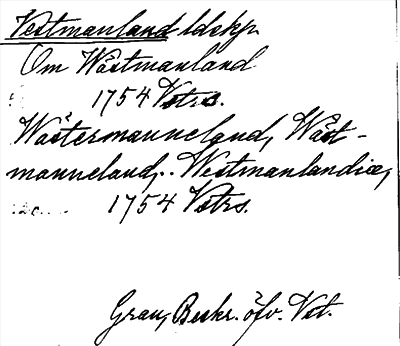 Vestmanland ldskp.
Om Wästmanland
1754 Vstrs.
Wästermanneland, Wäst-
manneland,.. Westmanlandiæ,
1754 Vstrs.
Grau, Beskr. öfv. Vst.